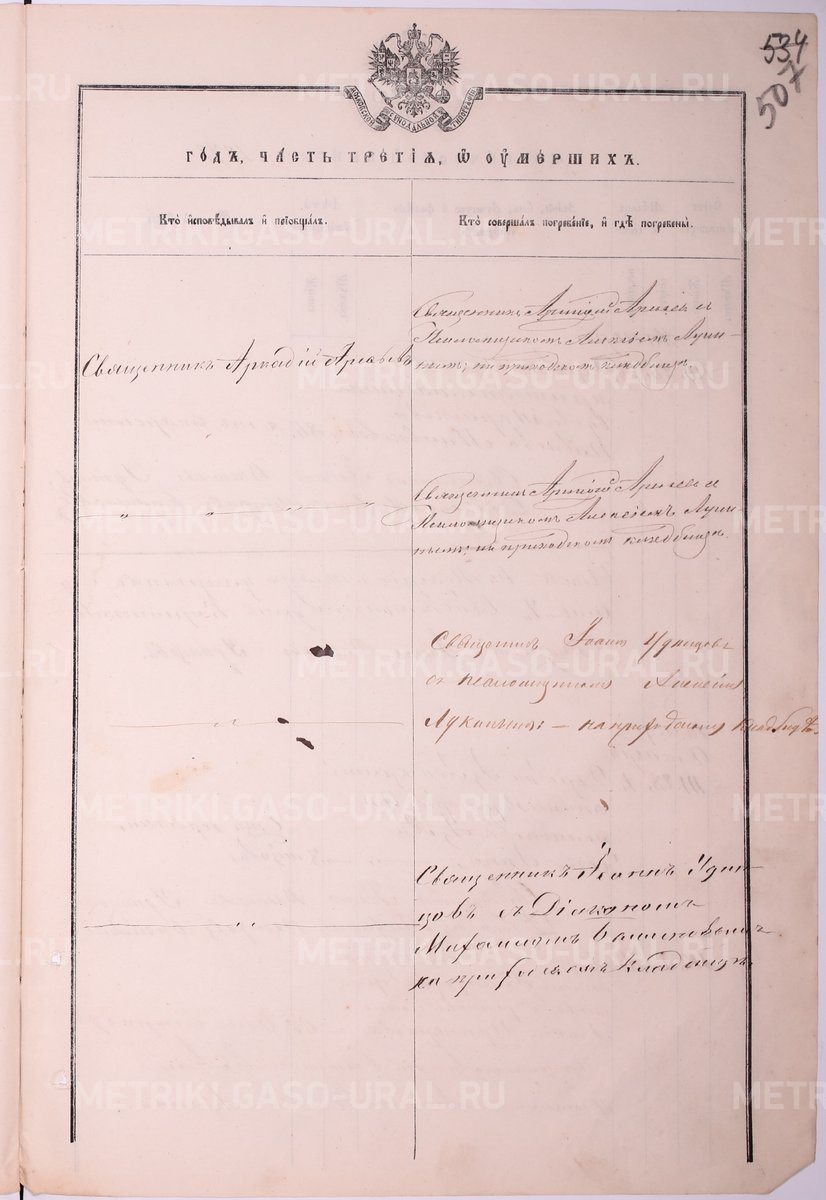 534
507
МОСКОВСКОЙ СѴНОДАЛЬНОЙ ТИПОГРАФІИ
ГОДЪ, ЧАСТЬ ТРЕТІЯ, Ѿ ОУМЕРШИХЪ.
Кто исповѣдывалъ и пріобщалъ.
Кто совершалъ погребеніе, и гдѣ погребены.
Священникъ Аркадій
Священникъ Аркадій съ
Псаломщикомъ Алексѣемъ
на приходскомъ кладбищѣ.
Священникъ Аркадій съ
Псаломщикомъ Алексѣемъ
на приходскомъ кладбищѣ.
Священникъ Іоаннъ Удинцовъ
съ псаломщикомъ Алексѣемъ
на приходскомъ кладбищѣ.
Священникъ Іоаннъ Удин-
цовъ съ Діакономъ
Михаиломъ
на приходскомъ кладбищѣ.
METRIKI.GASO-URAL.RU